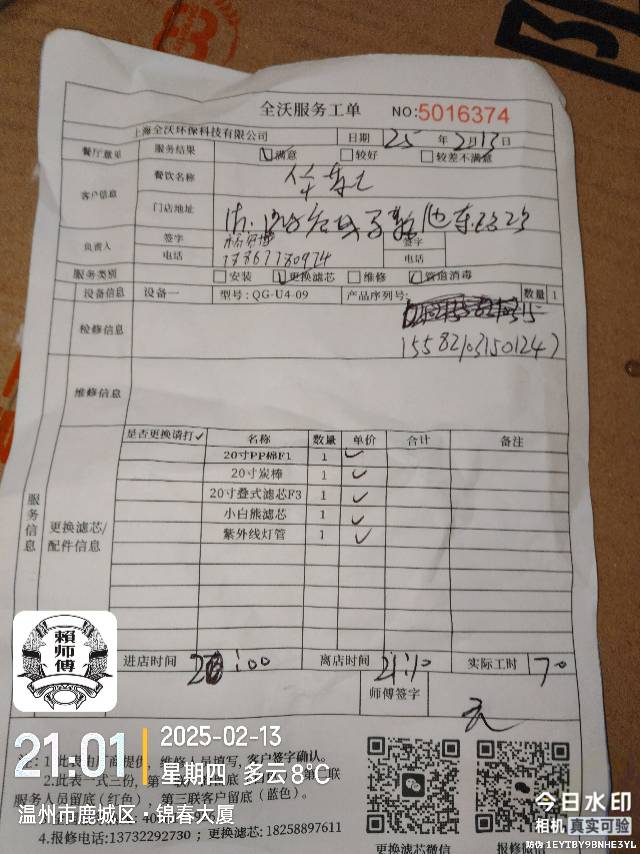 全沃服务工单 NO:5016374
上海全沃环保科技有限公司 日期 25 年 2 月 13 日
餐厅意见 服务结果 ☑满意 □较好 □较差不满意
客户信息 餐饮名称
门店地址
负责人 签字 签字
电话 电话
服务类别 □安装 ☑更换滤芯 □维修 ☑管道消毒
设备信息 设备一 型号:QG-U4-09 产品序列号: 数量 1
检修信息 155821031501247
维修信息
是否更换请打✓ 名称 数量 单价 合计 备注
20寸PP棉F1 1 ✓
20寸炭棒 1 ✓
20寸叠式滤芯F3 1 ✓
小白熊滤芯 1 ✓
紫外线灯管 1 ✓
服务信息 更换滤芯/
配件信息
进店时间 离店时间 21:10 实际工时 70
师傅签字
賴师傅
21:01 2025-02-13
星期四 多云 8℃
温州市鹿城区·锦春大厦
注:1.此表由厂商提供,维修人员填写,客户签字确认。
2.此表一式三份,
服务人员留底(红色),第三联客户留底(蓝色)。
4.报修电话:13732292730;更换滤芯:18258897611
更换滤芯微信 报修微信
今日水印
相机 真实可验
防伪 1EYTBY9BNHE3YL